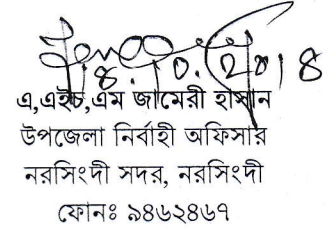 18.10.2018
এ,এইচ,এম জামেরী হাসান
উপজেলা নির্বাহী অফিসার
নরসিংদী সদর, নরসিংদী
ফোনঃ ৯৪৬২৪৬৭